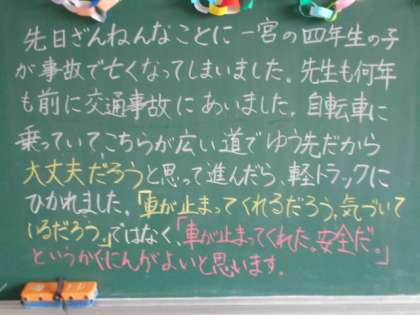 先日ざんねんなことに一宮の四年生の子
が事故で亡くなってしまいました。先生も何年
も前に交通事故にあいました。自転車に
乗っていて、こちらが広い道でゆう先だから
大丈夫だろうと思って進んだら、軽トラックに
ひかれました。「車が止まってくれるだろう。気づいて
いるだろう。」ではなく、「車が止まってくれた。安全だ。」
というかくにんがよいと思います。